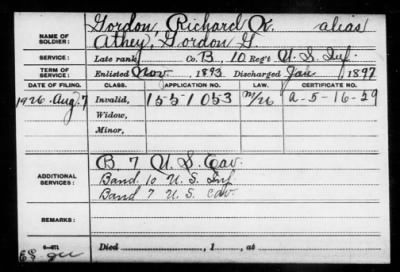 NAME OF SOLDIER: Gordon Richard K. alias
Athey, Gordon G.
SERVICE: Late rank Co. B, 10 Reg't U.S. Inf.
TERM OF SERVICE: Enlisted Nov. 1893 Discharged Jan 1897
DATE OF FILING. CLASS. APPLICATION NO. LAW. CERTIFICATE NO.
1926 Aug. 7 Invalid, 1551053 A-5-16-29
Widow,
Minor,
ADDITIONAL SERVICES:
B. 7 U.S. Cav.
Band 10 U.S. Inf
Band 7 U.S. Cav.
REMARKS:
Died , 1 , at